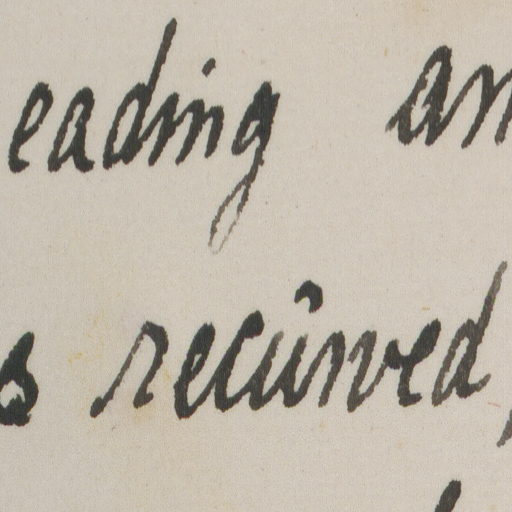 eading an
s recûrved,